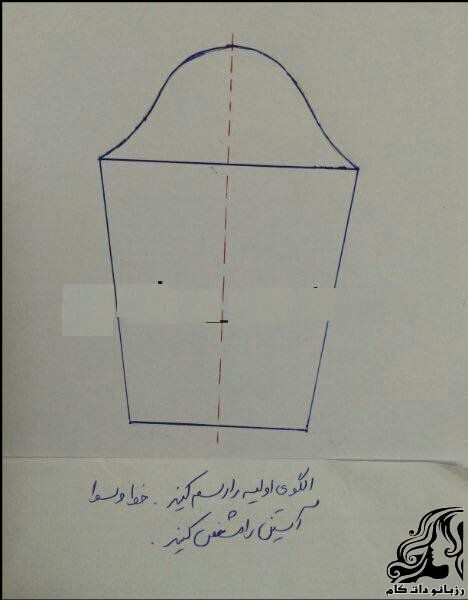 الگوی اولیه را رسم کنید . خط وسط
آستین را مشخص کنید .
رزبانو دات کام